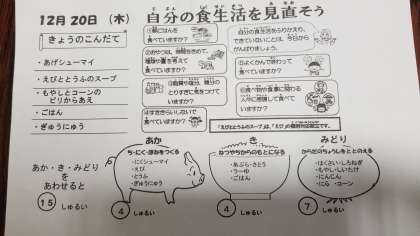 12月20日(木)
自分の食生活を見直そう
きょうのこんだて
・あげシューマイ
・えびととうふのスープ
・もやしとコーンの
ピリからあえ
・ごはん
・ぎゅうにゅう
①朝ごはんを
食べていますか?
②おやつは、時間をきめて、
食べていますか?
③脂質や塩分、糖分の
とりすぎに気をつけて
いますか?
④すききらいしないで
食べていますか?
自分の食生活をふりかえり、
できていないことは、今日から
がんばりましょう。
⑤よくかんで終わって
食べていますか?
⑥食べ物や食事に関わる
人々に感謝して食べて
いますか?
「えびととうふのスープ」は、「えび」の個別対応献立です。
あか・き・みどり
を
あわせると
15 しゅるい
あか
ち・にく・ほねをつくる
・にくシューマイ
・えび
・とうふ
・ぎゅうにゅう
4 しゅるい
き
ねつやちからのもとになる
・あぶら・さとう
・ラーゆ
・ごはん
4 しゅるい
みどり
からだのちょうしをととのえる
・はくさい・しろねぎ
・もやし・しいたけ
・にんじん
・にら・コーン
7 しゅるい